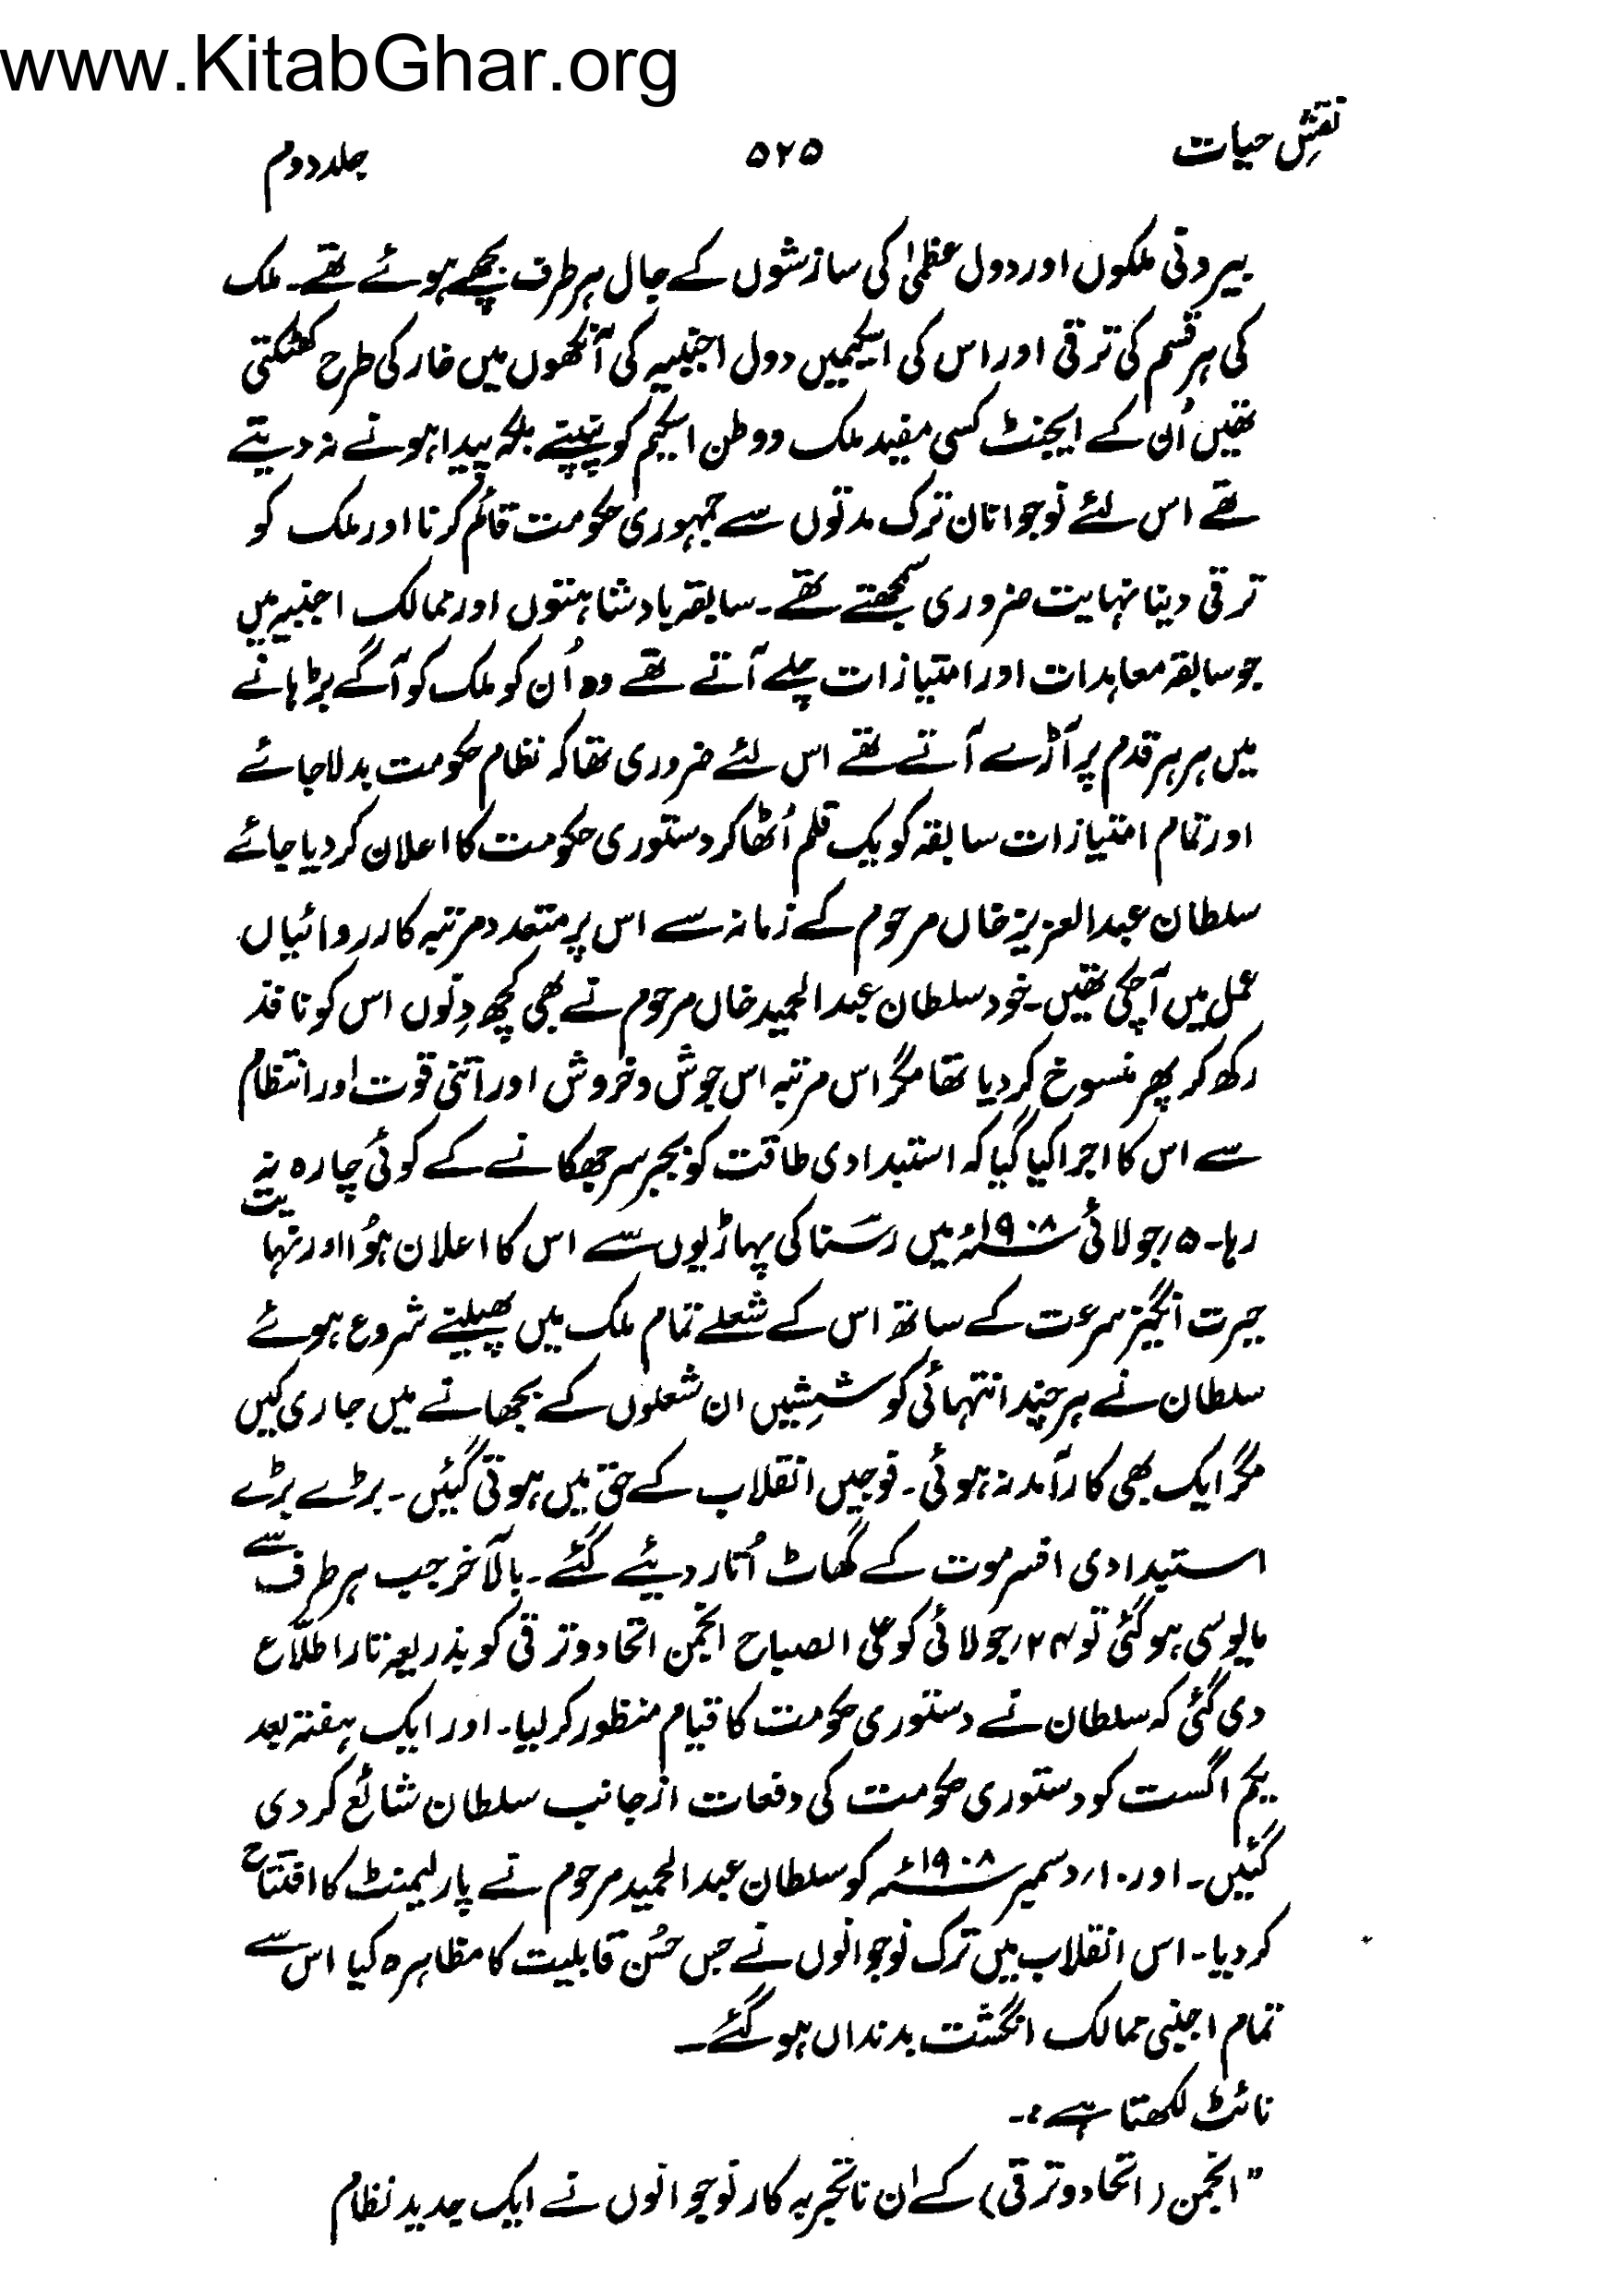 www.KitabGhar.org
نقشِ حیات ۵۲۵ جلد دوم
بیرونی ملکوں اور دول عظمیٰ کی سازشوں کے جال ہر طرف بچھے ہوئے تھے۔ ملک
کی ہر قسم کی ترقی اور اس کی اسکیمیں دول اجنبیہ کی آنکھوں میں خار کی طرح کھٹکتی
تھیں اُن کے ایجنٹ کسی مفید ملک ووطن اسکیم کو پنپنے بلکہ پیدا ہونے نہ دیتے
تھے اس لئے نوجوانان ترک مدتوں سے جمہوری حکومت قائم کرنا اور ملک کو
ترقی دینا نہایت ضروری سمجھتے تھے۔ سابقہ بادشاہتوں اور ممالک اجنبیہ میں
جو سابقہ معاہدات اور امتیازات چلے آتے تھے وہ اُن کو ملک کو آگے بڑہانے
میں ہر ہر قدم پر آڑے آتے تھے اس لئے ضروری تھا کہ نظام حکومت بدلا جائے
اور تمام امتیازات سابقہ کو یک قلم اُٹھا کر دستوری حکومت کا اعلان کر دیا جائے
سلطان عبدالعزیز خاں مرحوم کے زمانہ سے اس پر متعدد مرتبہ کارروائیاں
عمل میں آچکی تھیں۔ خود سلطان عبدالحمید خاں مرحوم نے بھی کچھ دِنوں اس کو نافذ
رکھ کر پھر منسوخ کر دیا تھا مگر اس مرتبہ اس جوش و خروش اور اتنی قوت اور انتظام
سے اس کا اجرا کیا گیا کہ استبدادی طاقت کو بجز سر جھکانے کے کوئی چارہ نہ
رہا۔ ۵؍جولائی ۱۹۰۸ء میں رسنا کی پہاڑیوں سے اس کا اعلان ہؤا اور نہایت
حیرت انگیز سرعت کے ساتھ اس کے شعلے تمام ملک میں پھیلنے شروع ہوئے
سلطان نے ہر چند انتہائی کوششیں ان شعلوں کے بجھانے میں جاری کیں
مگر ایک بھی کارآمد نہ ہوئی۔ فوجیں انقلاب کے حق میں ہوتی گئیں۔ بڑے بڑے
استبدادی افسر موت کے گھاٹ اُتار دیئے گئے۔ بالآخر جب ہر طرف سے
مایوسی ہو گئی تو ۲۴؍جولائی کو علی الصباح انجمن اتحاد و ترقی کو بذریعہ تار اطلاع
دی گئی کہ سلطان نے دستوری حکومت کا قیام منظور کر لیا۔ اور ایک ہفتہ بعد
یکم اگست کو دستوری حکومت کی دفعات از جانب سلطان شائع کر دی
گئیں۔ اور ۱۰؍دسمبر ۱۹۰۸ء کو سلطان عبدالحمید مرحوم نے پارلیمنٹ کا افتتاح
کر دیا۔ اس انقلاب میں ترک نوجوانوں نے جس حُسن قابلیت کا مظاہرہ کیا اس سے
تمام اجنبی ممالک انگشت بدنداں ہو گئے۔
نائٹ لکھتا ہے:۔
"انجمن (اتحاد و ترقی) کے ان ناتجربہ کار نوجوانوں نے ایک جدید نظام